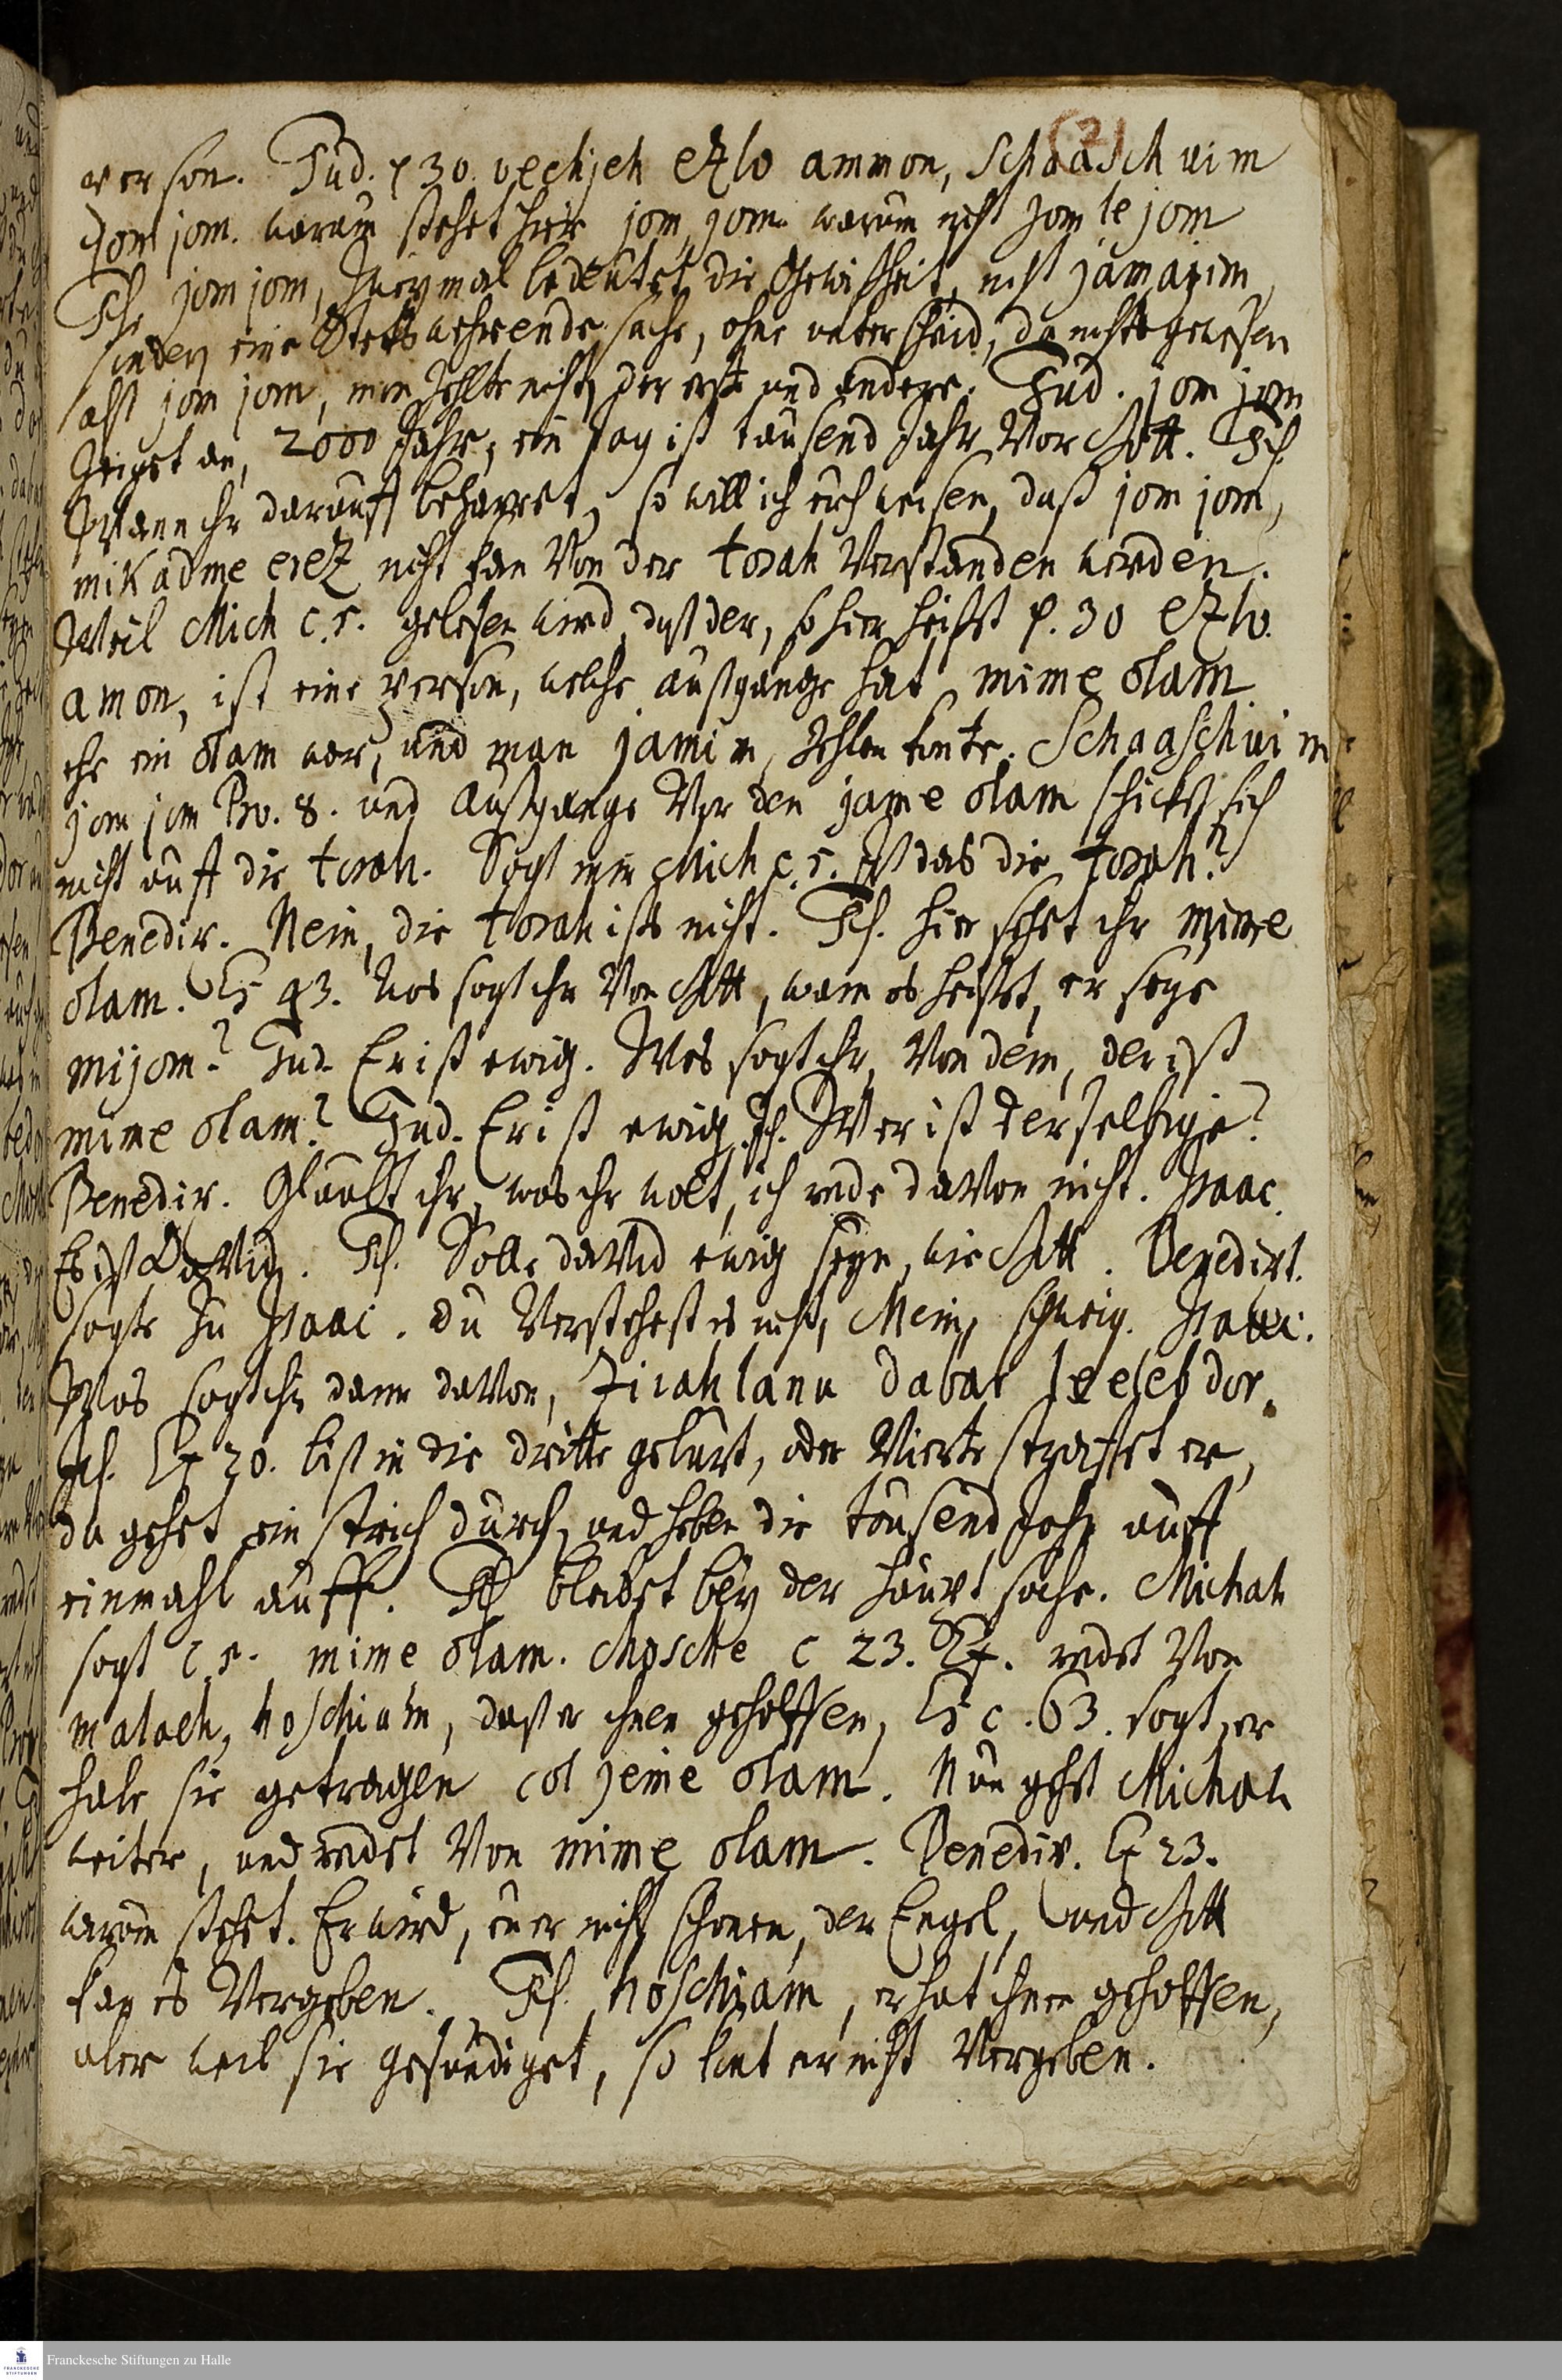 (7)
person. Jud. p 30. veehjeh ezlo ammon, Schaaschuim
jom jom. warum stehet hier jom, jom. warum nicht jom le jom
Ich. jom jom, zweymal bedeutet die Gewißheit, nicht
sondern eine Stets wehrende sache, ohne unterscheid, da nichts gewesen
alß jom jom, man zehlte nicht, der erste und andere. Jud. jom jom
Zeiget an, 2000 Jahr, ein tag ist tausend Jahr Vor Gott. Ich.
Wann ihr darauff beharret, so will ich euch weisen, daß jom jom,
mikadme erez nicht kan Von der torah Verstanden werden.
Weil Mich c. 5. gelesen wird, daß der, so hier heißt p. 30 ezlo
amon, ist eine person, welche außgänge hat mime olam
ehe ein olam war, und man jamim zehlen konte. Schaaschuim
jom jom Prov. 8. und Außgange Vor den jame olam schickt sich
nicht auff die torah. Sagt mir Mich c. 5. ist das die torah?
Benedix. Nein, die torah ists nicht. Ich. hier sehet ihr mime
olam. Es 43. was sagt ihr Von Gott, wann es heißet, er seye
mijom? Jud. Er ist ewig. Was sagt ihr, Von dem, der ist
mime olam? Jud. Er ist ewig. Ich. Wer ist derselbige?
Benedix. Glaubt ihr, was ihr wolt, ich rede davon nicht. Isaac.
Es ist David. Ich. Solte david ewig seyn, wie Gott. Benedixt.
sagte zu Isaac. du Verstehest es nicht, Mein, schweig. Isaac.
Was sagt ihr dann davon, zivah lanu dabar leelef dor.
Ich. Ex 20. bist in die dritte geburt, oder Vierte straffet er,
da gehet ein strich durch, und heben die tausend Jahr auff
einmahl auff. Ich bleibet bey der haupt sache. Michah
sagt c 5. mime olam. Mosche c 23. Ex. redet Von
malach, hoschiam, daß er ihnen geholffen, Es c. 63. sagt, er
habe sie getragen col jeme olam. Nun gehet Michah
weiter, und redet Von mime olam. Benedix. Ex 23.
warum stehet. Er wird, euer nicht schonen, der Engel, und Gott
kan es Vergeben. Ich. hoschiam, er hat ihnen geholffen,
aber weil sie gesündiget, so kont er nicht Vergeben.
Franckesche Stiftungen zu Halle